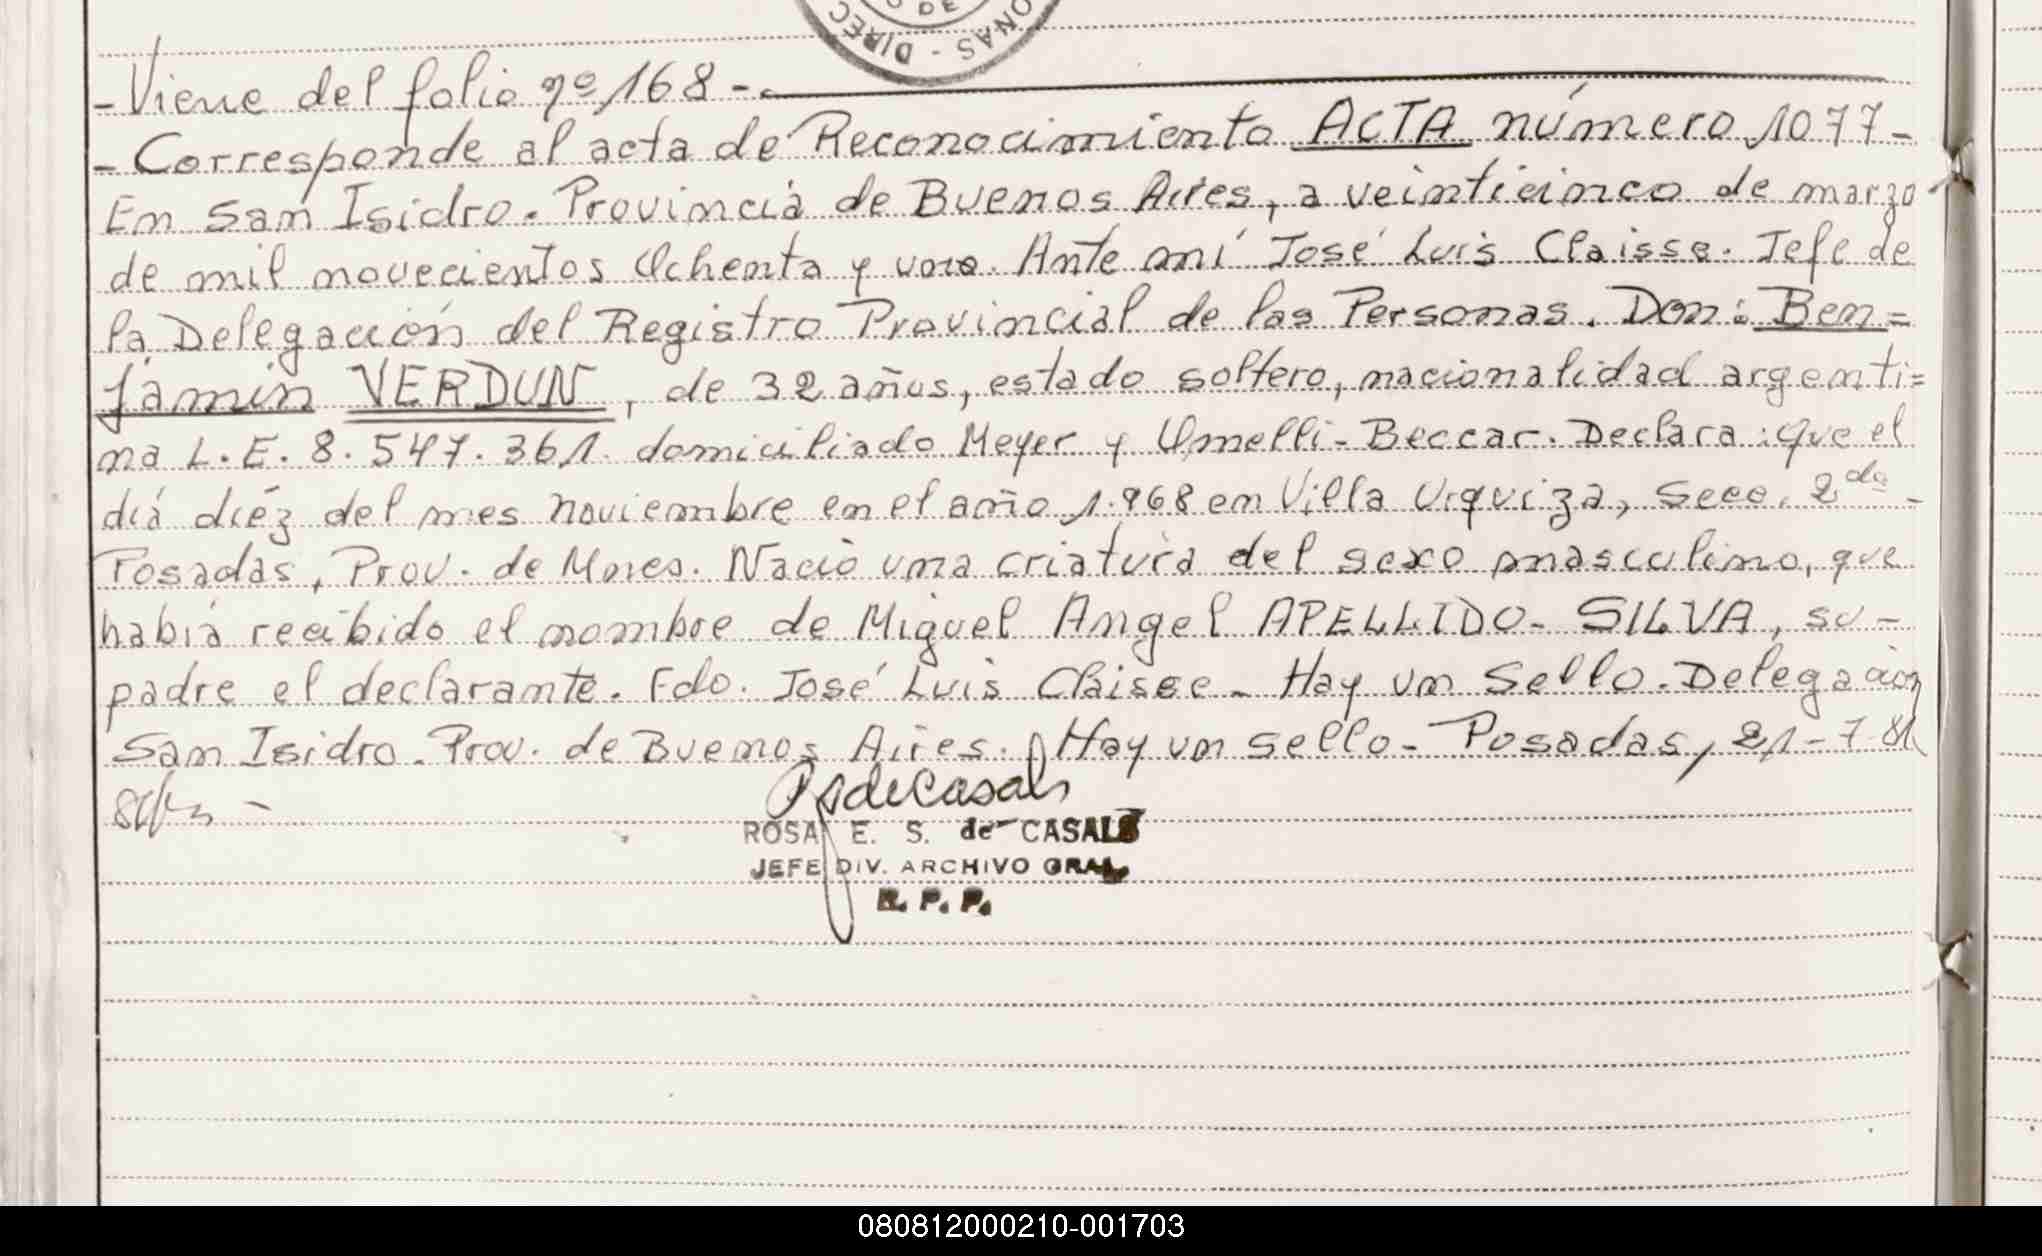 DIREC
ONAS - DIREC
O DE
- Viene del folio nº 168 -.
- Corresponde al acta de Reconocimiento ACTA número 1077 -
En San Isidro. Provincia de Buenos Aires, a veinticinco de marzo
de mil novecientos Ochenta y uno. Ante mí José Luis Claisse. Jefe de
la Delegación del Registro Provincial de las Personas. Don: Ben=
jamin VERDUN, de 32 años, estado soltero, nacionalidad argenti=
na L.E. 8.547.361. domiciliado Meyer y Omelli - Beccar. Declara: que el
diá diéz del mes noviembre en el año 1.968 en Villa Urquiza, Secc. 2da -
Posadas, Prov. de Mnes. Nació una criatura del sexo masculino, que
habiá recibido el nombre de Miguel Angel APELLIDO - SILVA, su -
padre el declarante. Fdo. José Luis Claisse - Hay un Sello. Delegación
San Isidro. Prov. de Buenos Aires. Hay un sello - Posadas, 21-7-81
ROSA E. S. de CASALS
JEFE DIV. ARCHIVO GRAL.
R. P. P.
080812000210-001703